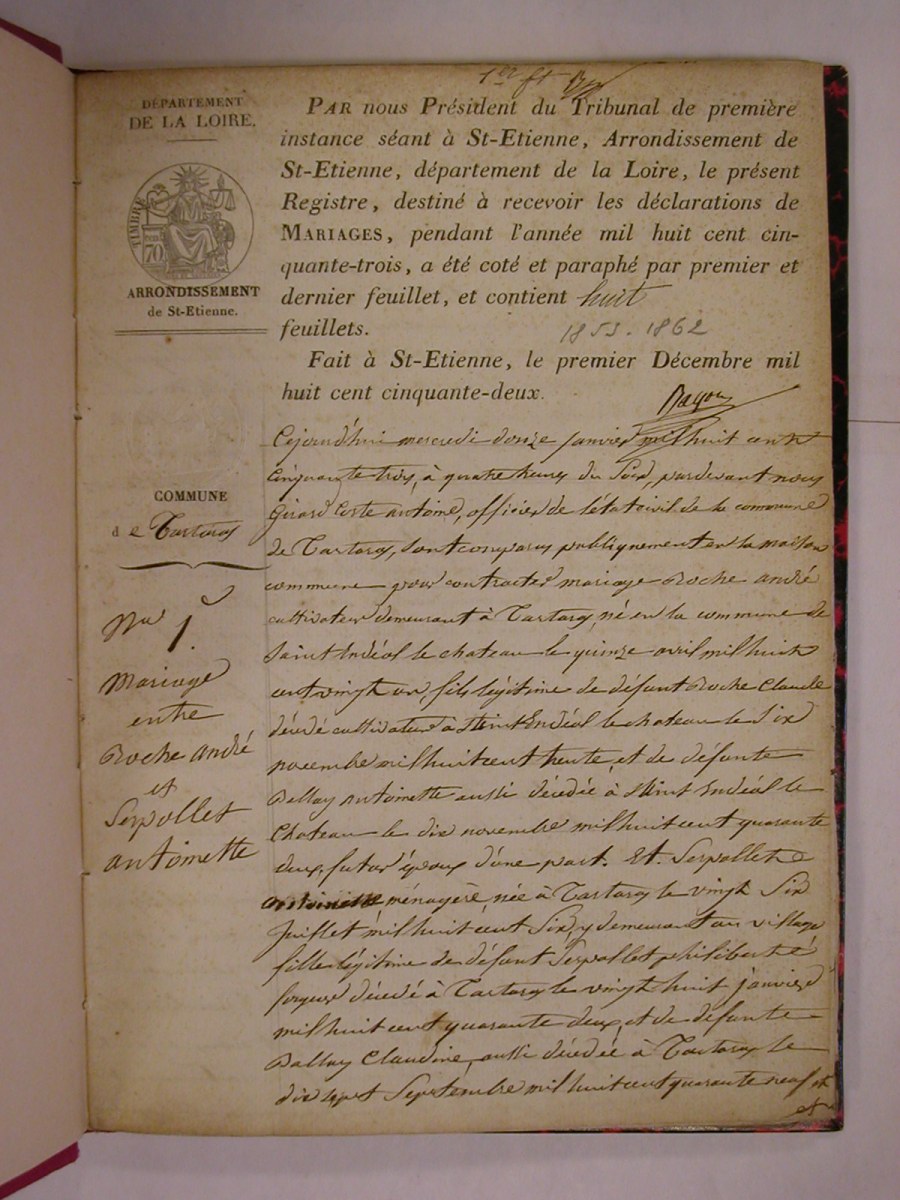 1er ft
DÉPARTEMENT
DE LA LOIRE.
TIMBRE
70
ARRONDISSEMENT
de St-Etienne.
PAR nous Président du Tribunal de première
instance séant à St-Etienne, Arrondissement de
St-Etienne, département de la Loire, le présent
Registre, destiné à recevoir les déclarations de
MARIAGES, pendant l'année mil huit cent cin-
quante-trois, a été coté et paraphé par premier et
dernier feuillet, et contient huit
feuillets.
1853. 1862
Fait à St-Etienne, le premier Décembre mil
huit cent cinquante-deux.
COMMUNE
d e Tartaras
No 1.
Mariage
entre
Roche andré
et
Serpollet
antoinette
Cejourd'hui mercredi douze janvier mil huit cent
cinquante trois, à quatre heures du Soir, pardevant nous
Girard Coste antoine, officier de l'état civil de la commune
de Tartaras, sont comparus publiquement en la maison
commune pour contracter mariage Roche andré
cultivateur demeurant à Tartaras, né en la commune de
Saint Andéol le chateau le quinze avril mil huit
cent vingt un, fils légitime de défunt Roche Claude
décédé cultivateur à St Andéol le chateau le Six
novembre mil huit cent trente, et de défunte
antoinette aussi décédée à Andéol le
Chateau le dix novembre mil huit cent quarante
deux, futur époux d'une part. Et Serpollet
antoinette ménagère, née à Tartaras le vingt Six
Juillet mil huit cent Six, y demeurant au village
fille légitime de défunt Serpollet philibert
forgeur décédé à Tartaras le vingt huit janvier
mil huit cent quarante deux, et de défunte
Claudine, aussi décédée à Tartaras le
dix sept Septembre mil huit cent quarante neuf et
et